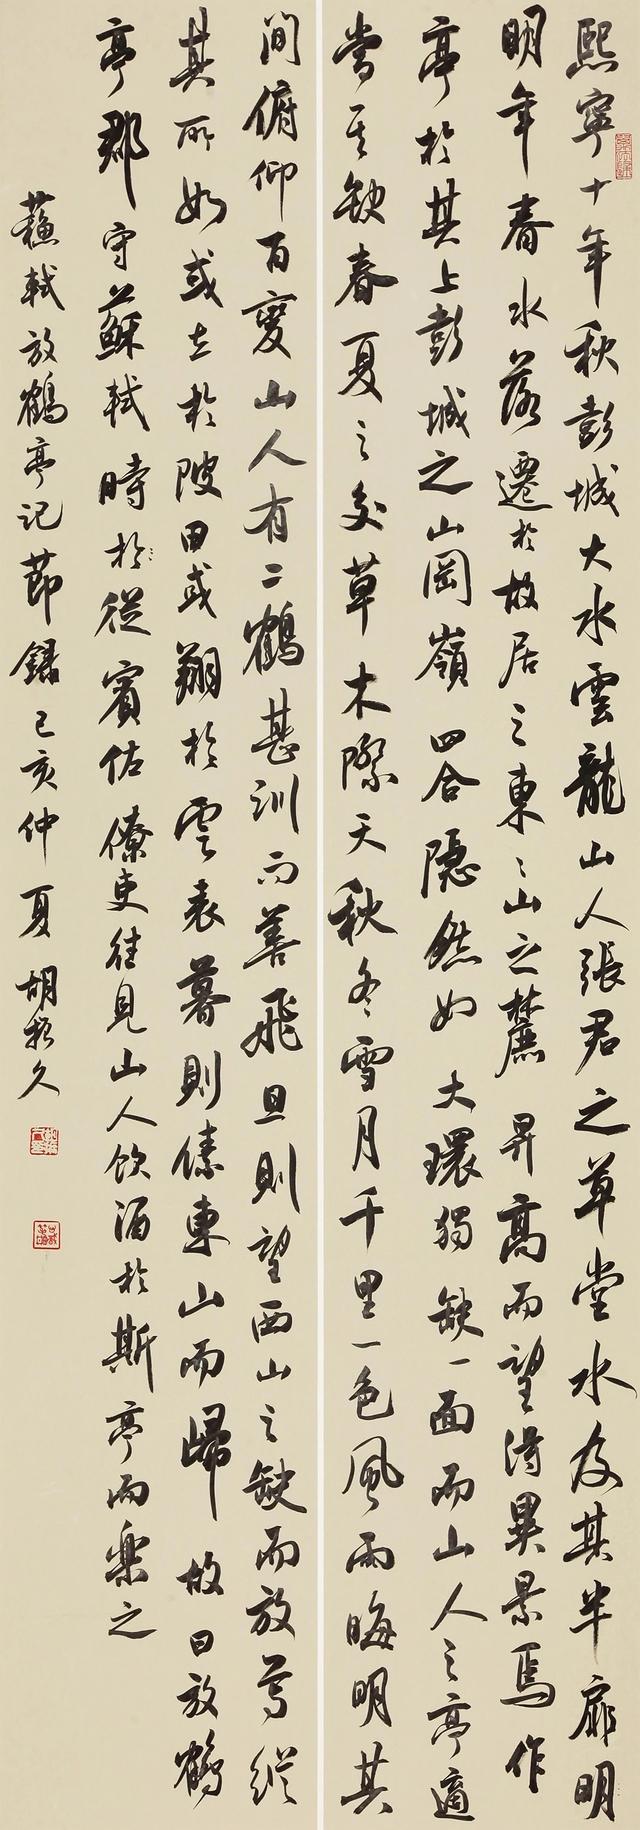 熙寧十年秋彭城大水雲龍山人張君之草堂水及其半扉明
明年春水落遷於故居之東〻山之麓昇高而望得異景焉作
亭於其上彭城之山岡嶺四合隱然如大環獨缺一面而山人之亭適
當其缺春夏之交草木際天秋冬雪月千里一色風雨晦明其
間俯仰百變山人有二鶴甚訓而善飛旦則望西山之缺而放焉縱
其所如或立於陂田或翔於雲表暮則傃東山而歸故曰放鶴
亭郡守蘇軾時於從賓佐僚吏往見山人飲酒於斯亭而樂之
蘇軾放鶴亭記節錄己亥仲夏胡振久